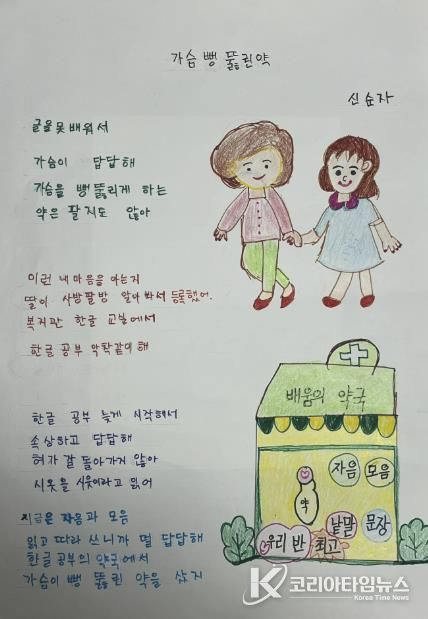 가슴 뻥 뚫린약
신순자
글을 못 배워서
가슴이 답답해
가슴을 뻥 뚫리게 하는
약은 팔지도 않아
이런 내마음을 아는지
딸이 사방팔방 알아봐서 등록했어.
복지관 한글 교실에서
한글 공부 악착같이 해
한글 공부 늦게 시작해서
속상하고 답답해
혀가 잘 돌아가지 않아
시옷을 시옷이라고 읽어
지금은 자음과 모음
읽고 따라 쓰니까 덜 답답해
한글 공부의 약국에서
가슴이 뻥 뚫린 약을 샀지
배움의 약국
자음 모음
약
낱말 문장
우리 반 최고
코리아타임뉴스
Korea Time News